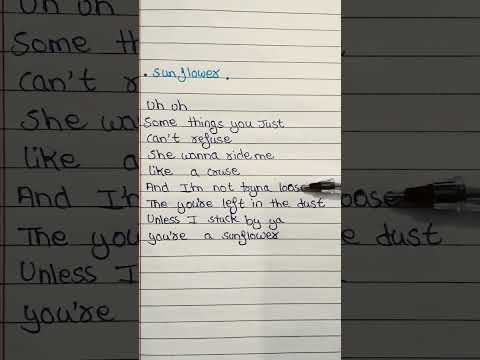 . Sunflower .
Uh oh
Some things you Just
Can't refuse
She wanna ride me
like a cruse
And I'm not tryna loose
The you're left in the dust
Unless I stuck by ya
you're a sunflower